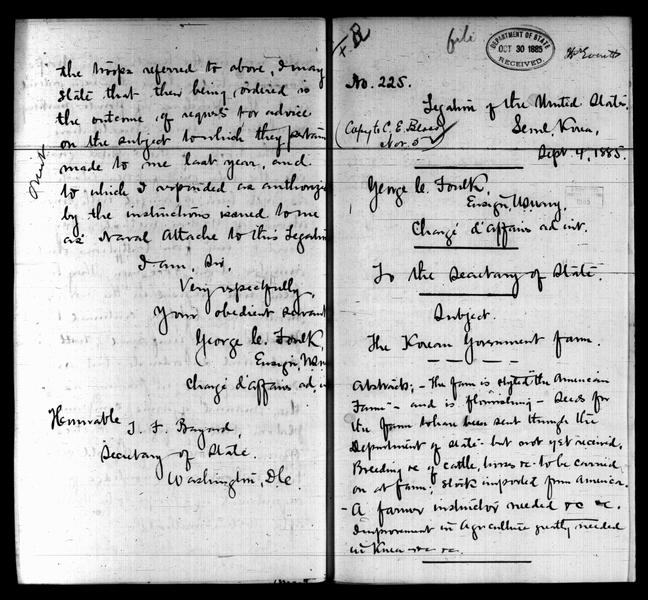 the troops referred to above, I may
state that their being ordered is
the outcome of request for advice
on the subject to which they pertain
made to me last year, and
to which I responded as authorize
by the instructions issued to me
as Naval Attache to this Legation
Omit
I am, Sir,
Very respectfully,
Your obedient servant
George C. Foulk,
Ensign, U.S.N
Chargé d'affaires ad. in
Honorable
T. F. Bayard,
Secretary of State.
Washington, D.C
file
DEPARTMENT OF STATE
OCT 30 1885
RECEIVED
No. 225.
Legation of the United States.
Seoul, Korea,
(Copy to C. E.
Nov. 5
Sept. 4, 1885.
George C. Foulk,
Ensign, U.S. Navy,
Chargé d'affaires ad int.
To the Secretary of State.
Subject.
The Korean Government farm.
Abstracts; - The farm is styled the "American
Farm" - and is flourishing - Seeds for
the farm to have been sent through the
Department of State - but not yet received.
Breeding &c of cattle, horses &c to be carried
on at farm; stock imported from America.
- A farmer instructor needed &c &c.
Improvement in Agriculture greatly needed
in Korea &c &c.